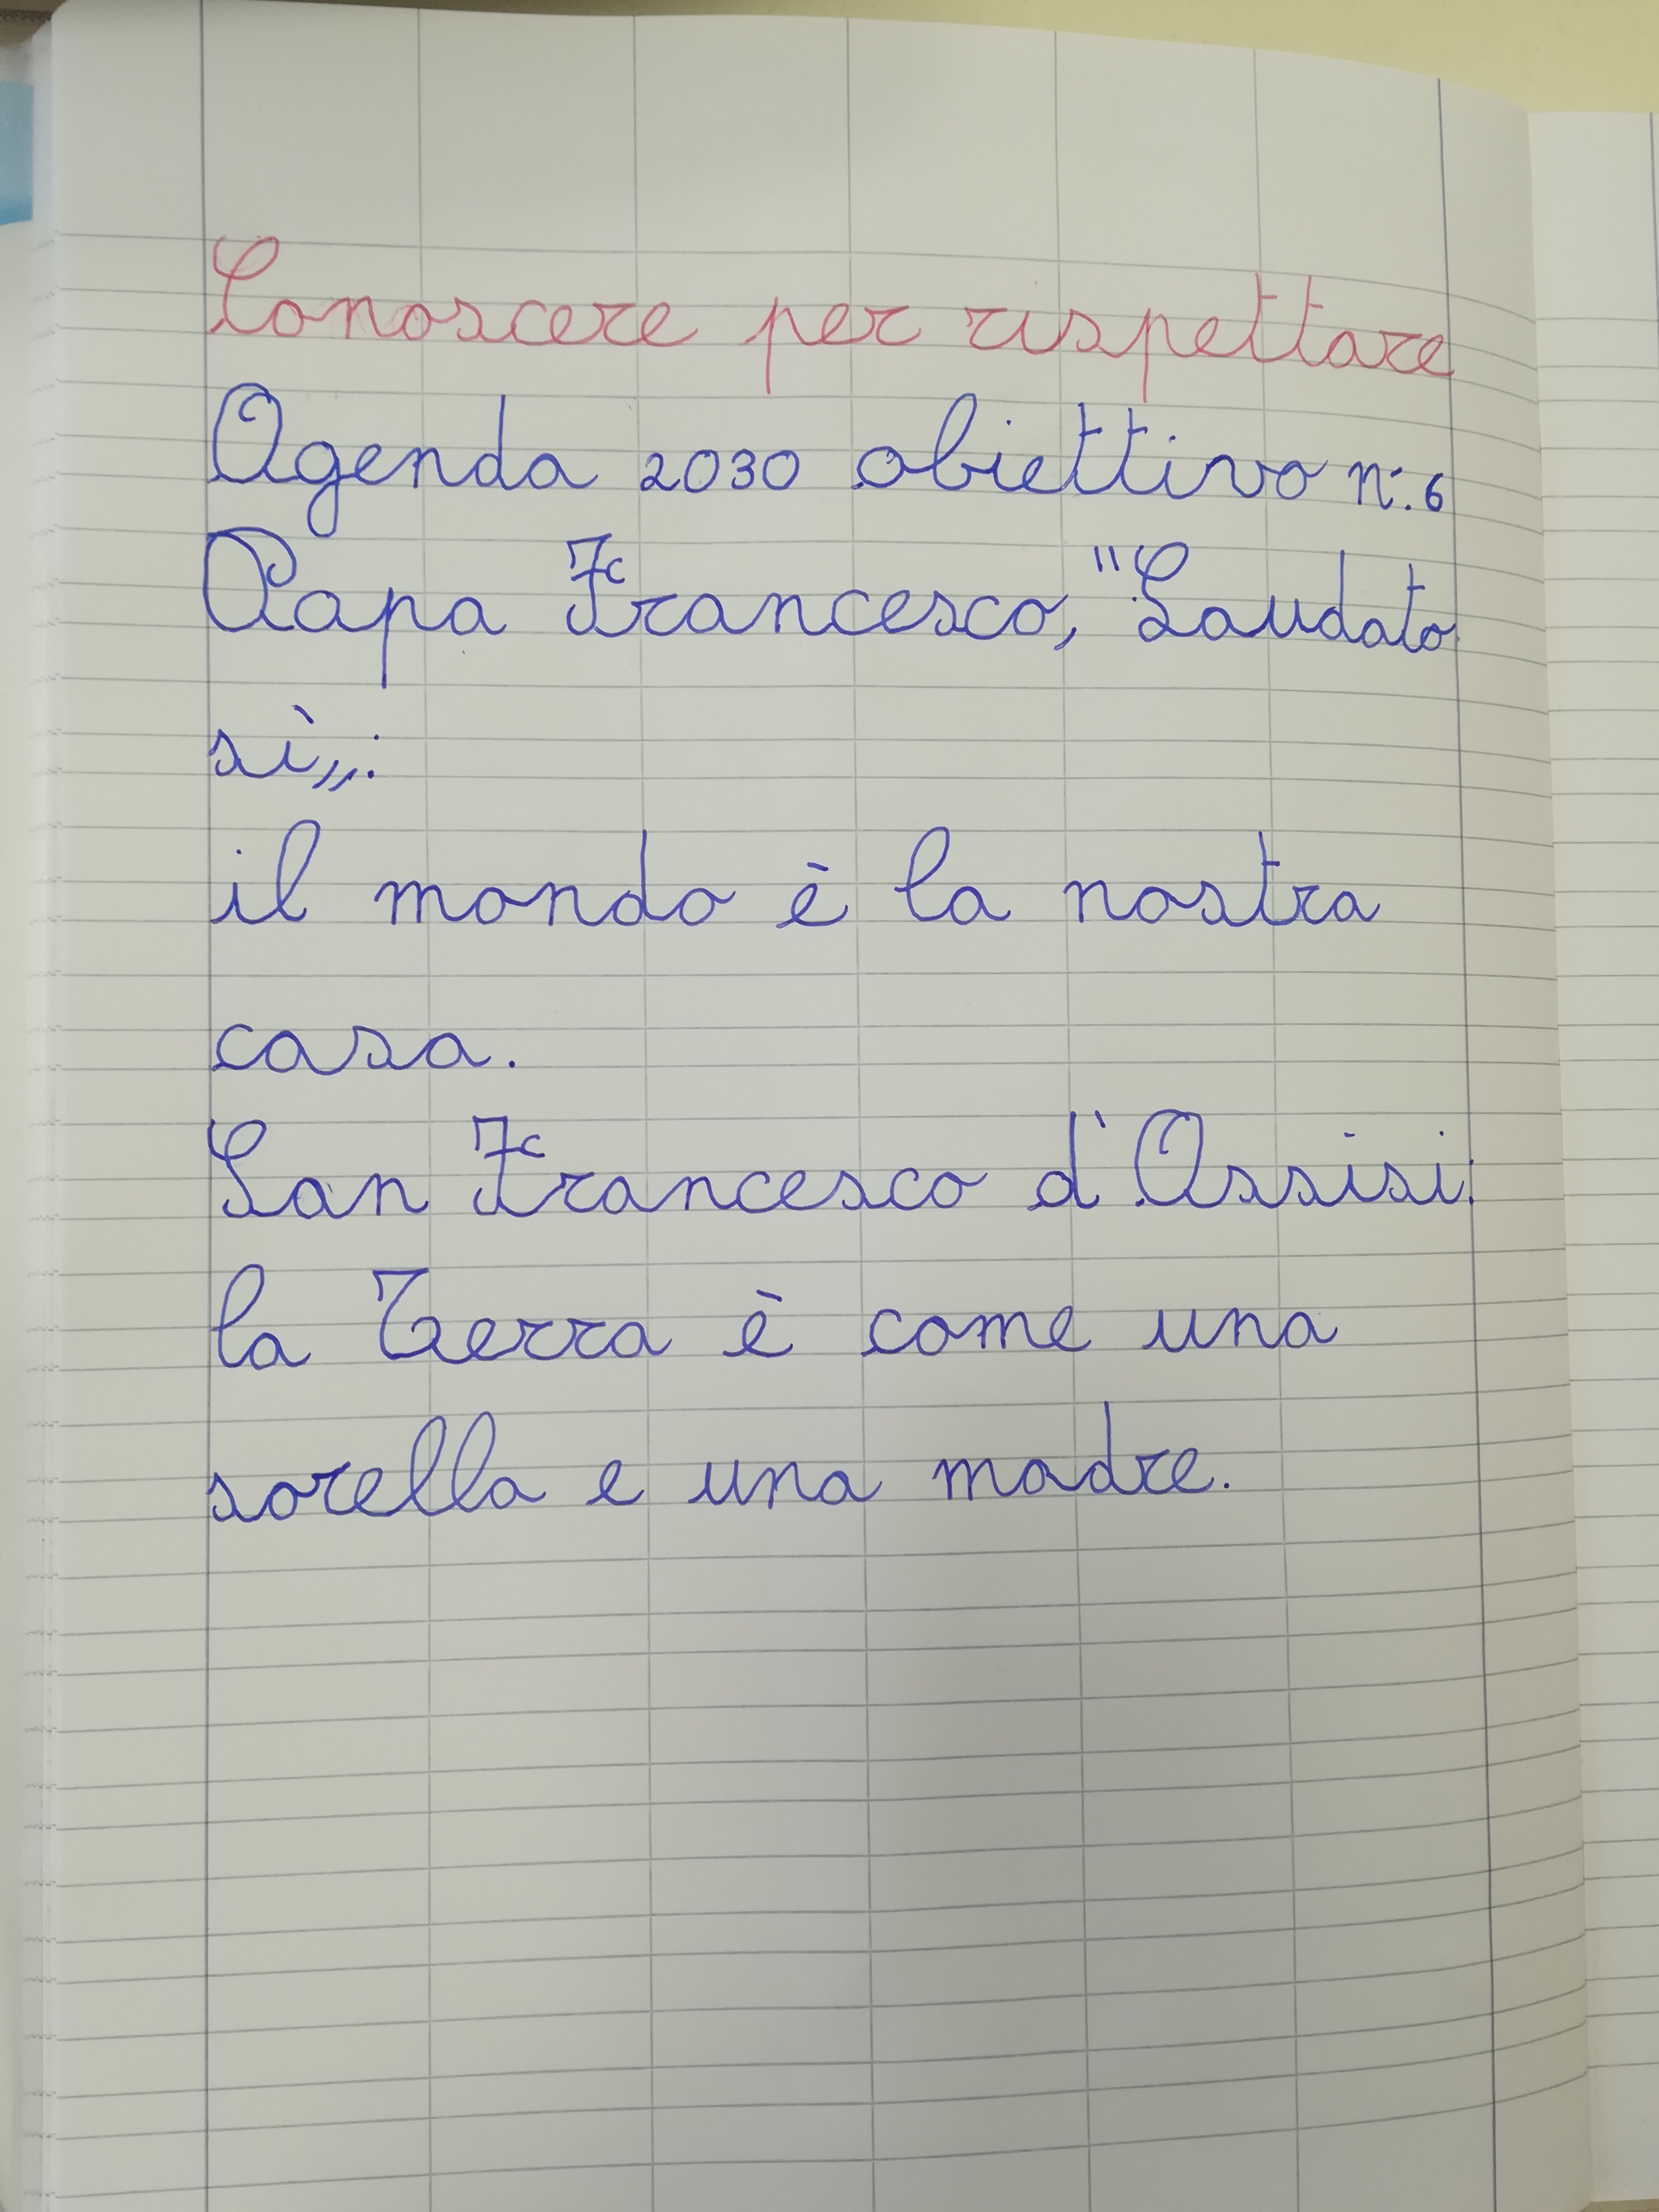 Conoscere per rispettare
Agenda 2030 obiettivo n:6
Papa Francesco, "Laudato
sì„:
il mondo è la nostra
casa.
San Francesco d'Assisi:
la Terra è come una
sorella e una madre.